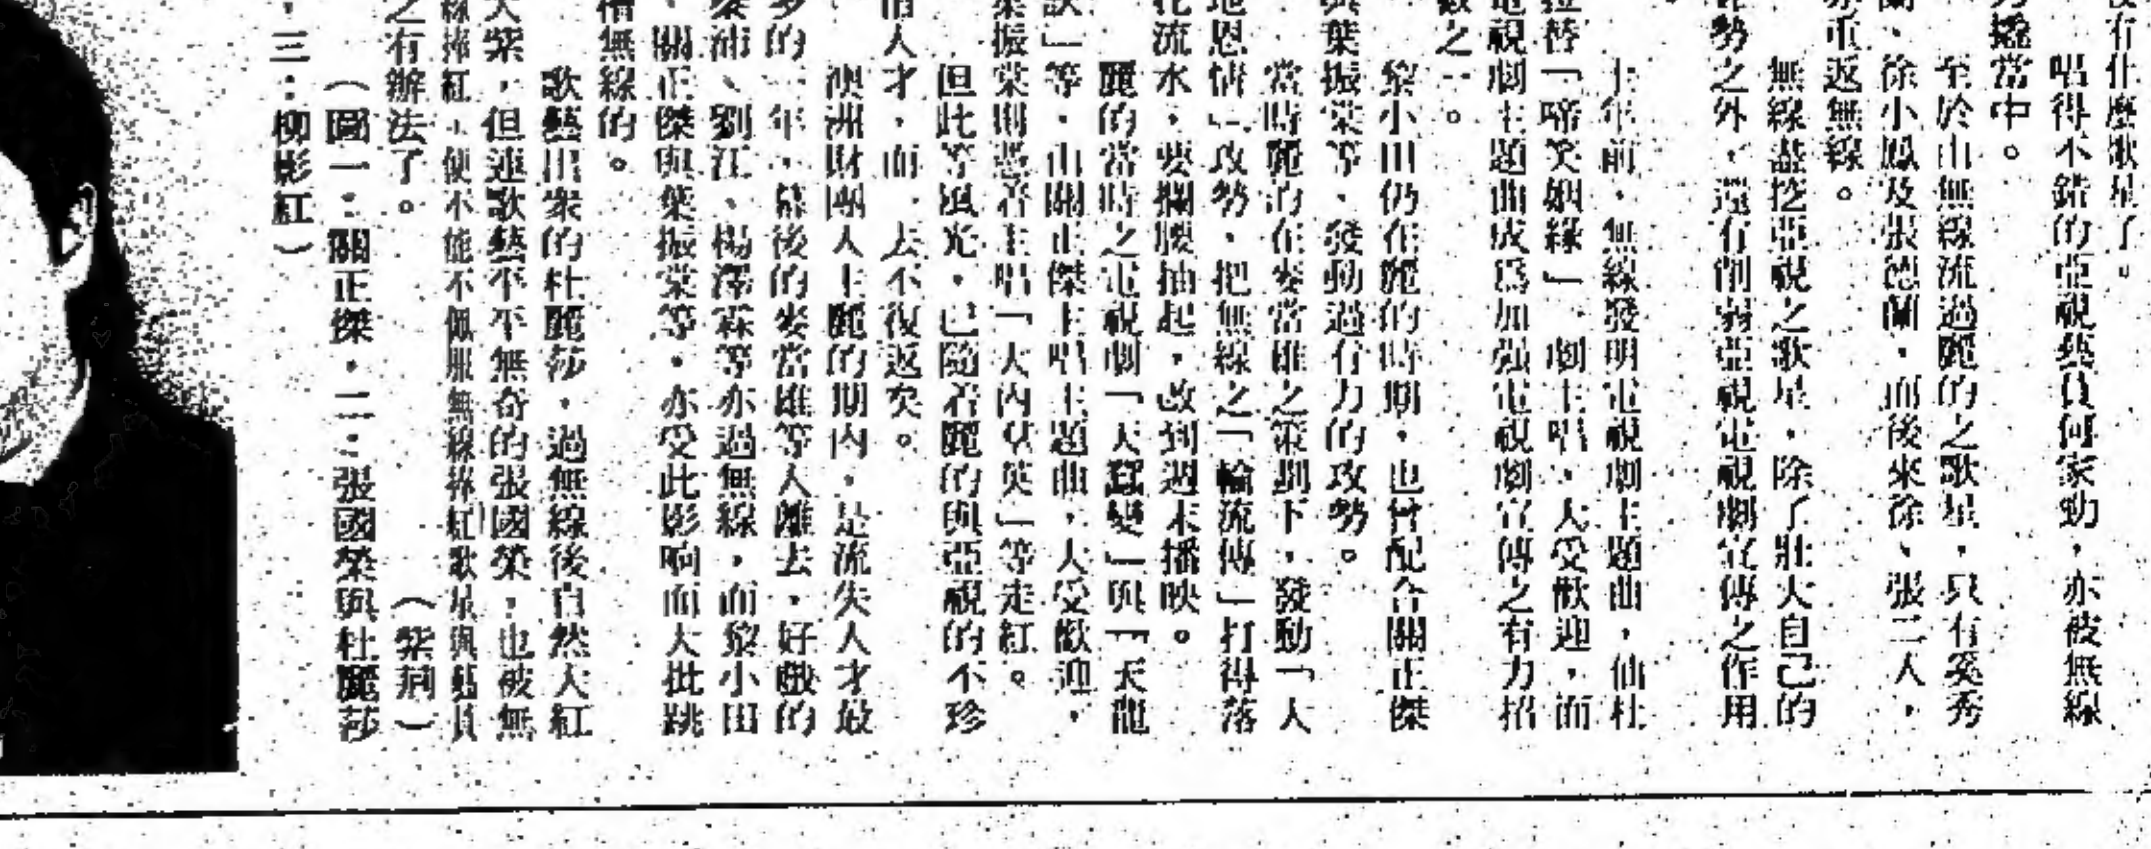 沒有什麼歌星了。
唱得不錯的亞視藝員何家勁，亦被無線
力撬當中。
至於由無線流過麗的之歌星，只有奚秀
蘭、徐小鳳及張德蘭，而後來徐、張二人，
亦重返無線。
無線盡挖亞視之歌星，除了壯大自己的
勢之外，還有削弱亞視電視劇宣傳之作用
十年前，無線發明電視劇主題曲，仙杜
拉替「啼笑姻緣」劇主唱，大受歡迎，而
電視劇主題曲成爲加强電視劇宣傳之有力招
數之一。
黎小田仍在麗的時期，也曾配合關正傑
與葉振棠等，發動過有力的攻勢。
當時麗的在麥當雄之策劃下，發動「人
地恩情」攻勢，把無線之「輪流傳」打得落
花流水，要攔腰抽起，改到週末播映。
麗的當時之電視劇「天蠶變」與「天龍
訣」等，由關正傑主唱主題曲，大受歡迎，
葉振棠則憑着主唱「大內羣英」等走紅。
但此等風光，已隨着麗的與亞視的不珍
惜人才，而一去不復返矣。
澳洲財團入主麗的期內，是流失人才最
多的一年，幕後的麥當雄等人離去，好戲的
秦沛、劉江、楊澤霖等亦過無線，而黎小田
、關正傑與葉振棠等，亦受此影响而大批跳
槽無線的。
歌藝出衆的杜麗莎，過無線後自然大紅
大紫，但連歌藝平平無奇的張國榮，也被無
線捧紅，便不能不佩服無線捧紅歌星與藝員
之有辦法了。（紫荊）
（圖一：關正傑，二：張國榮與杜麗莎
，三：柳影紅）